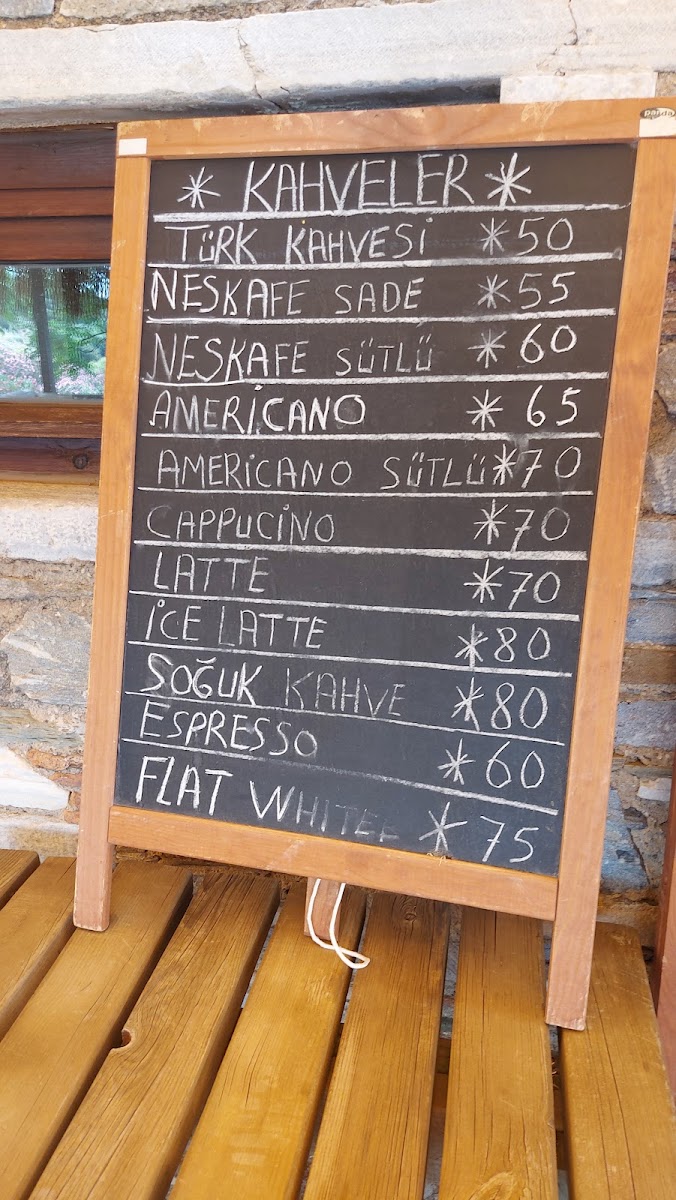 * KAHVELER *
TÜRK KAHVESİ * 50
NESKAFE SADE * 55
NESKAFE SÜTLÜ * 60
AMERİCANO * 65
AMERİCANO SÜTLÜ * 70
CAPPUCİNO * 70
LATTE * 70
İCE LATTE * 80
SOĞUK KAHVE * 80
ESPRESSO * 60
FLAT WHITEE * 75
panda